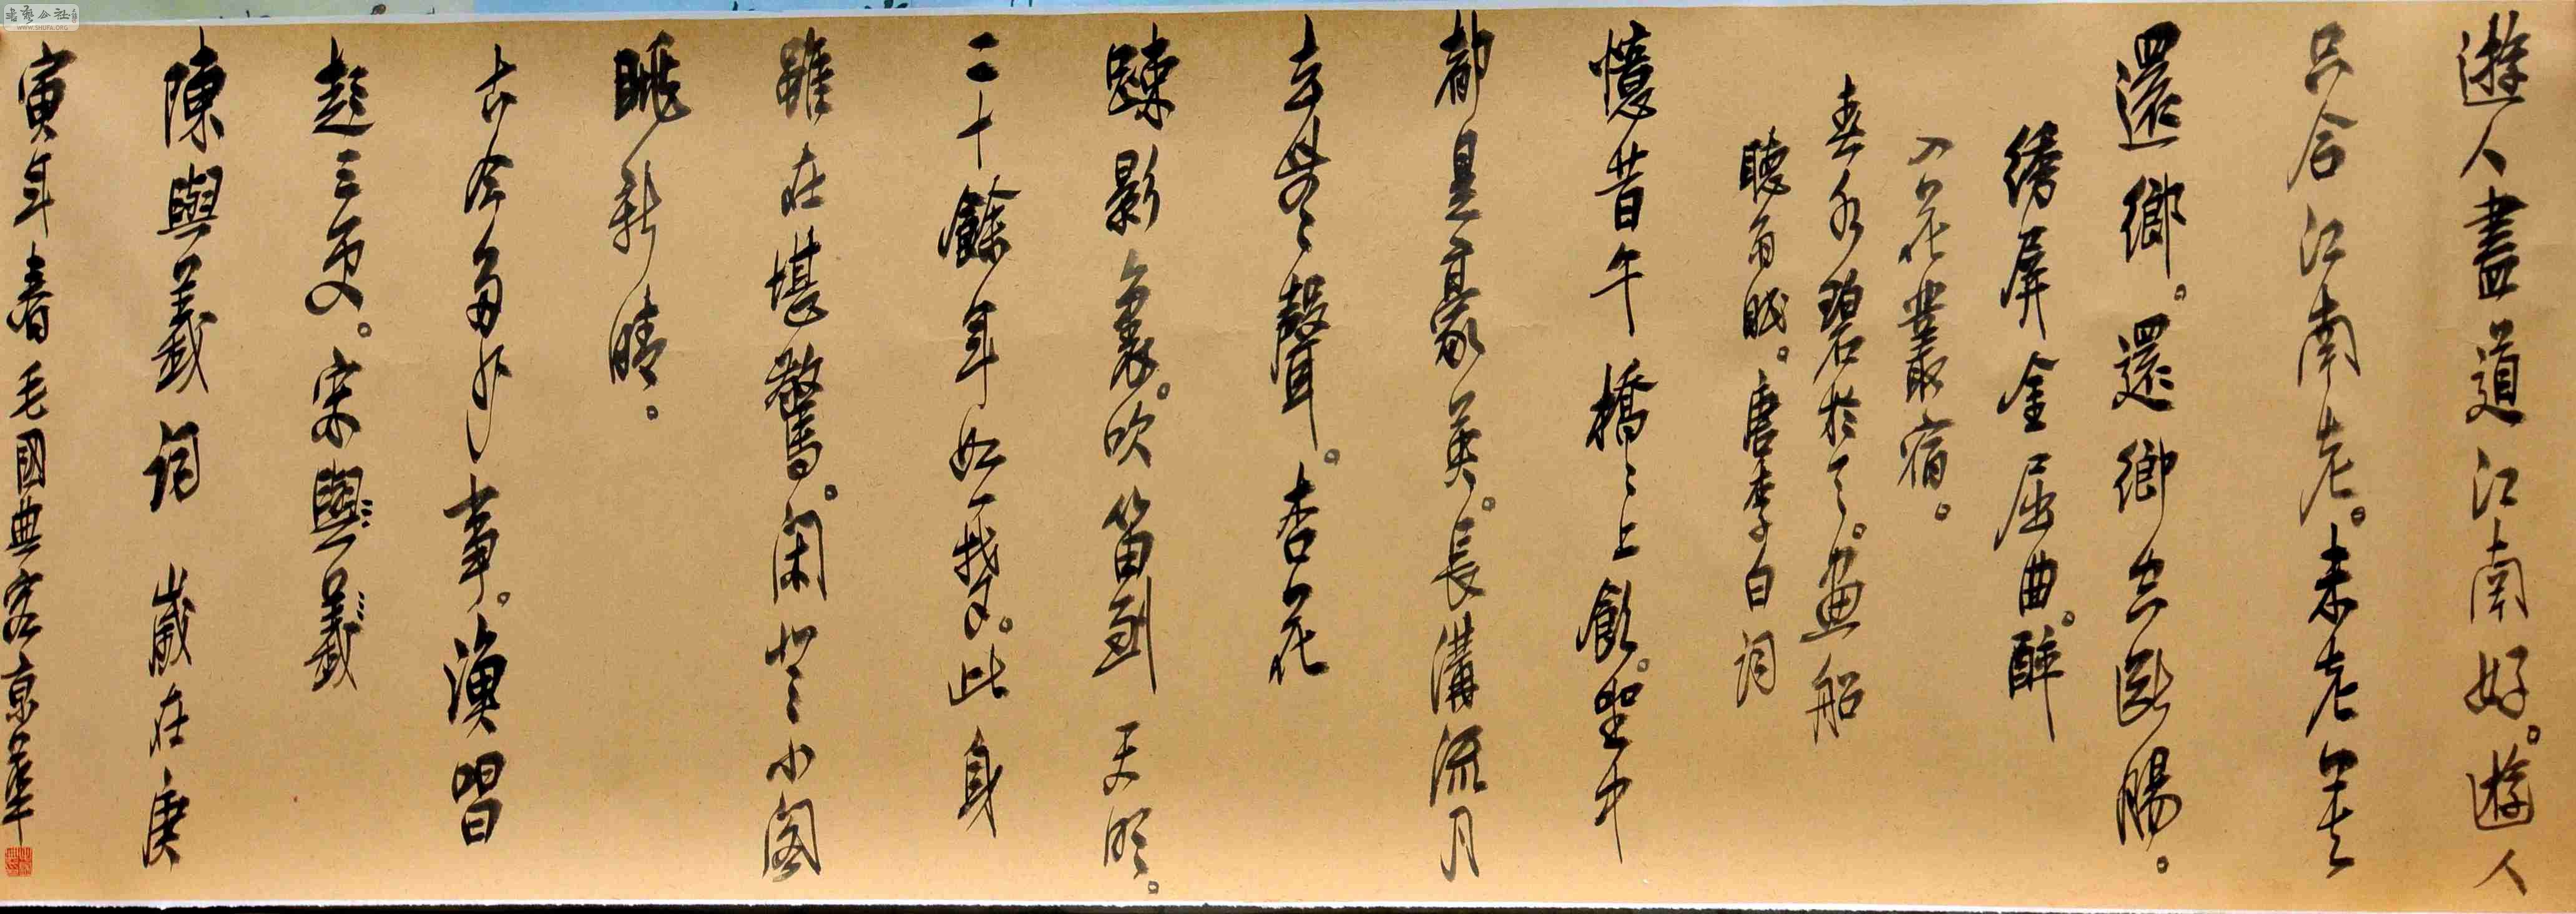 遊人盡道江南好。遊人
只合江南老。未老莫
還鄉。還鄉空斷腸。
綉屏金屈曲。醉
入花叢宿。
春水碧於天。畫船
聽雨眠。唐李白詞
憶昔午橋〻上飲。坐中
都是豪英。長溝流月
去無〻聲。杏花
踈影裏。吹笛到天明。
二十餘年如一夢。此身
雖在堪驚。閑登小閣
眺新晴。
古今多少事。漁唱
起三更。宋與義
陳與義詞 歲在庚
寅年春毛國典客京華
WWW.SHUFA.ORG